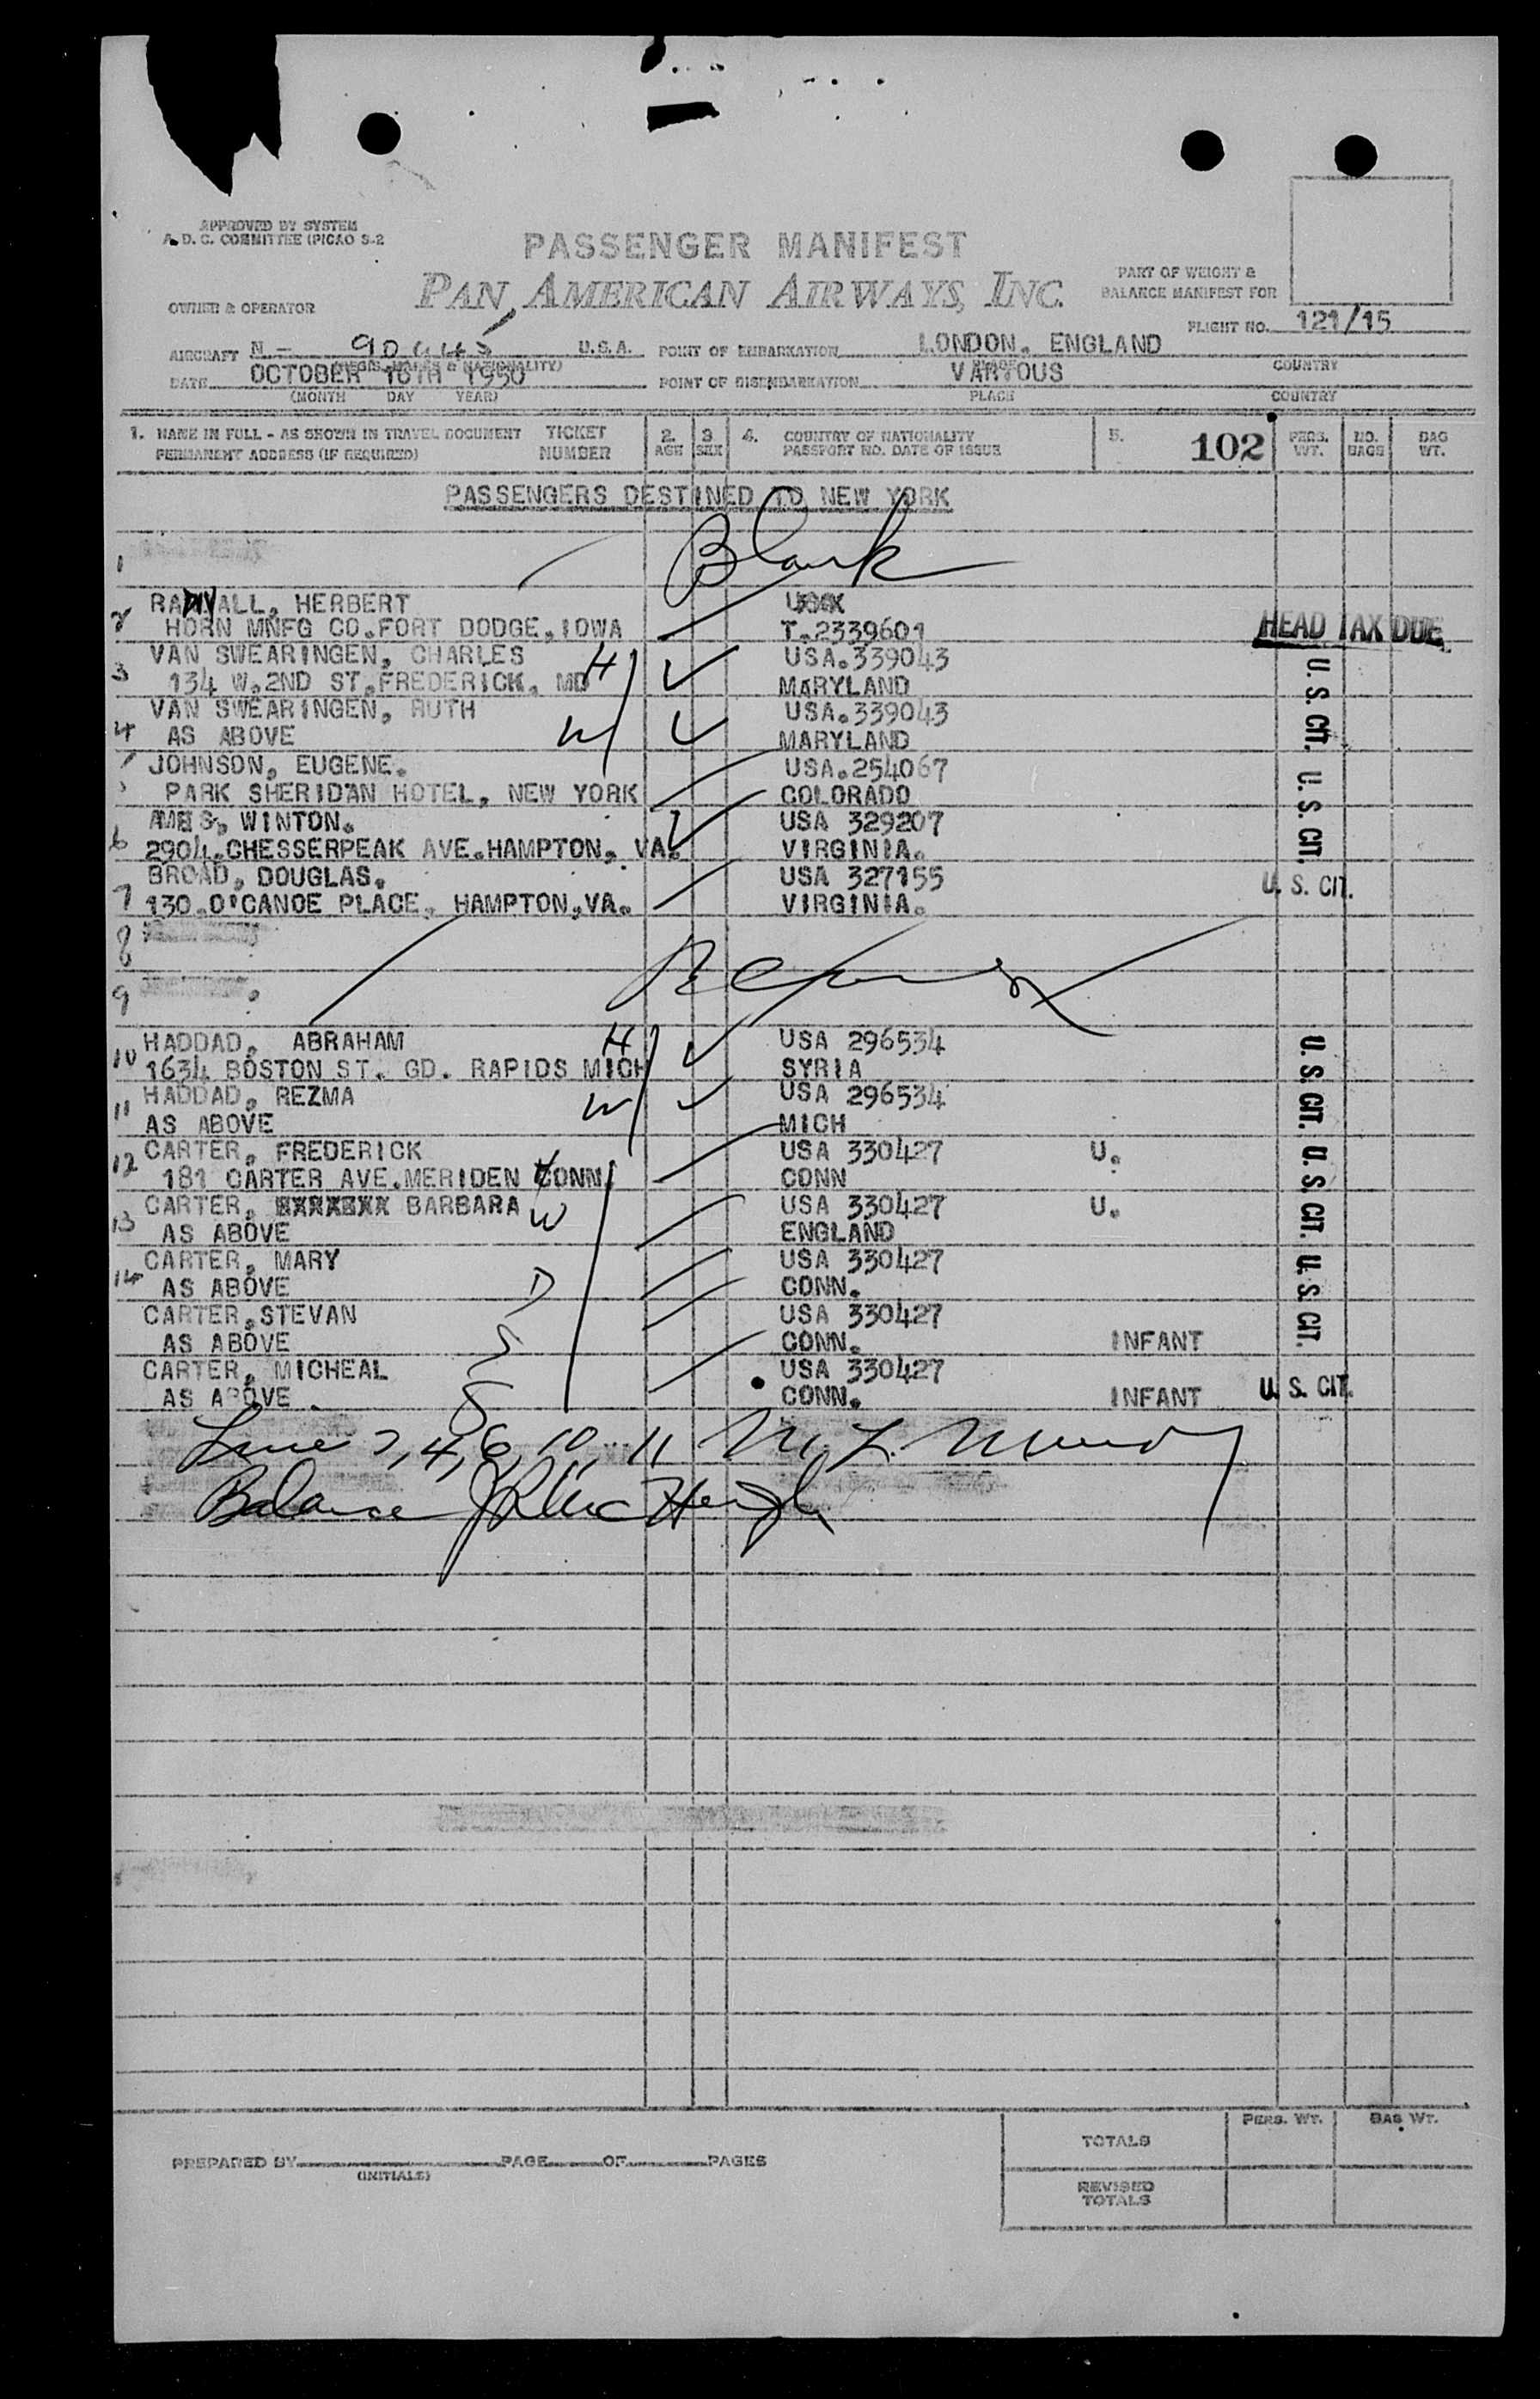 APPROVED BY SYSTEM
A.D.C. COMMITTEE (PICAO S-2
PASSENGER MANIFEST
PAN AMERICAN AIRWAYS, INC.
PART OF WEIGHT &
BALANCE MANIFEST FOR
OWNER & OPERATOR
FLIGHT NO. 121/15
AIRCRAFT N - U.S.A. POINT OF EMBARKATION LONDON, ENGLAND
DATE OCTOBER 16TH 1950 POINT OF DISEMBARKATION VARIOUS COUNTRY
(MONTH DAY YEAR) PLACE COUNTRY
1. NAME IN FULL - AS SHOWN IN TRAVEL DOCUMENT TICKET 2. 3. 4. COUNTRY OF NATIONALITY 5. 102 PERS. NO. BAG
PERMANENT ADDRESS (IF REQUIRED) NUMBER AGE SEX PASSPORT NO. DATE OF ISSUE WT. BAGS WT.
PASSENGERS DESTINED TO NEW YORK
1 Blank
HERBERT
2 HORN MNFG CO.FORT DODGE,IOWA T.2339601 HEAD TAX DUE
VAN SWEARINGEN, CHARLES H USA.339043
3 134 W.2ND ST.FREDERICK, MD MARYLAND U. S. CIT.
VAN SWEARINGEN, RUTH USA.339043
4 AS ABOVE W MARYLAND
JOHNSON, EUGENE. USA.254067
PARK SHERIDAN HOTEL, NEW YORK COLORADO U. S. CIT.
AMES, WINTON. USA 329207
6 2904.CHESSERPEAK AVE.HAMPTON, VA. VIRGINIA.
BROAD, DOUGLAS. USA 327155 U. S. CIT.
7 130.O'CANOE PLACE, HAMPTON,VA. VIRGINIA.
8
9
HADDAD, ABRAHAM H USA 296534
10 1634 BOSTON ST. GD. RAPIDS MICH SYRIA U. S. CIT.
HADDAD, REZMA USA 296534
11 AS ABOVE W MICH
CARTER, FREDERICK USA 330427 U.
12 181 CARTER AVE.MERIDEN CONN. CONN U. S. CIT.
CARTER, BARBARA W USA 330427 U.
13 AS ABOVE ENGLAND
CARTER, MARY USA 330427
14 AS ABOVE D CONN. U. S. CIT.
CARTER,STEVAN USA 330427
AS ABOVE S CONN. INFANT
CARTER, MICHEAL USA 330427
AS ABOVE S CONN. INFANT U. S. CIT.
Line 3, 4, 6, 10, 11
Balance
PREPARED BY PAGE OF PAGES
(INITIALS)
PERS. WT. BAG WT.
TOTALS
REVISED
TOTALS